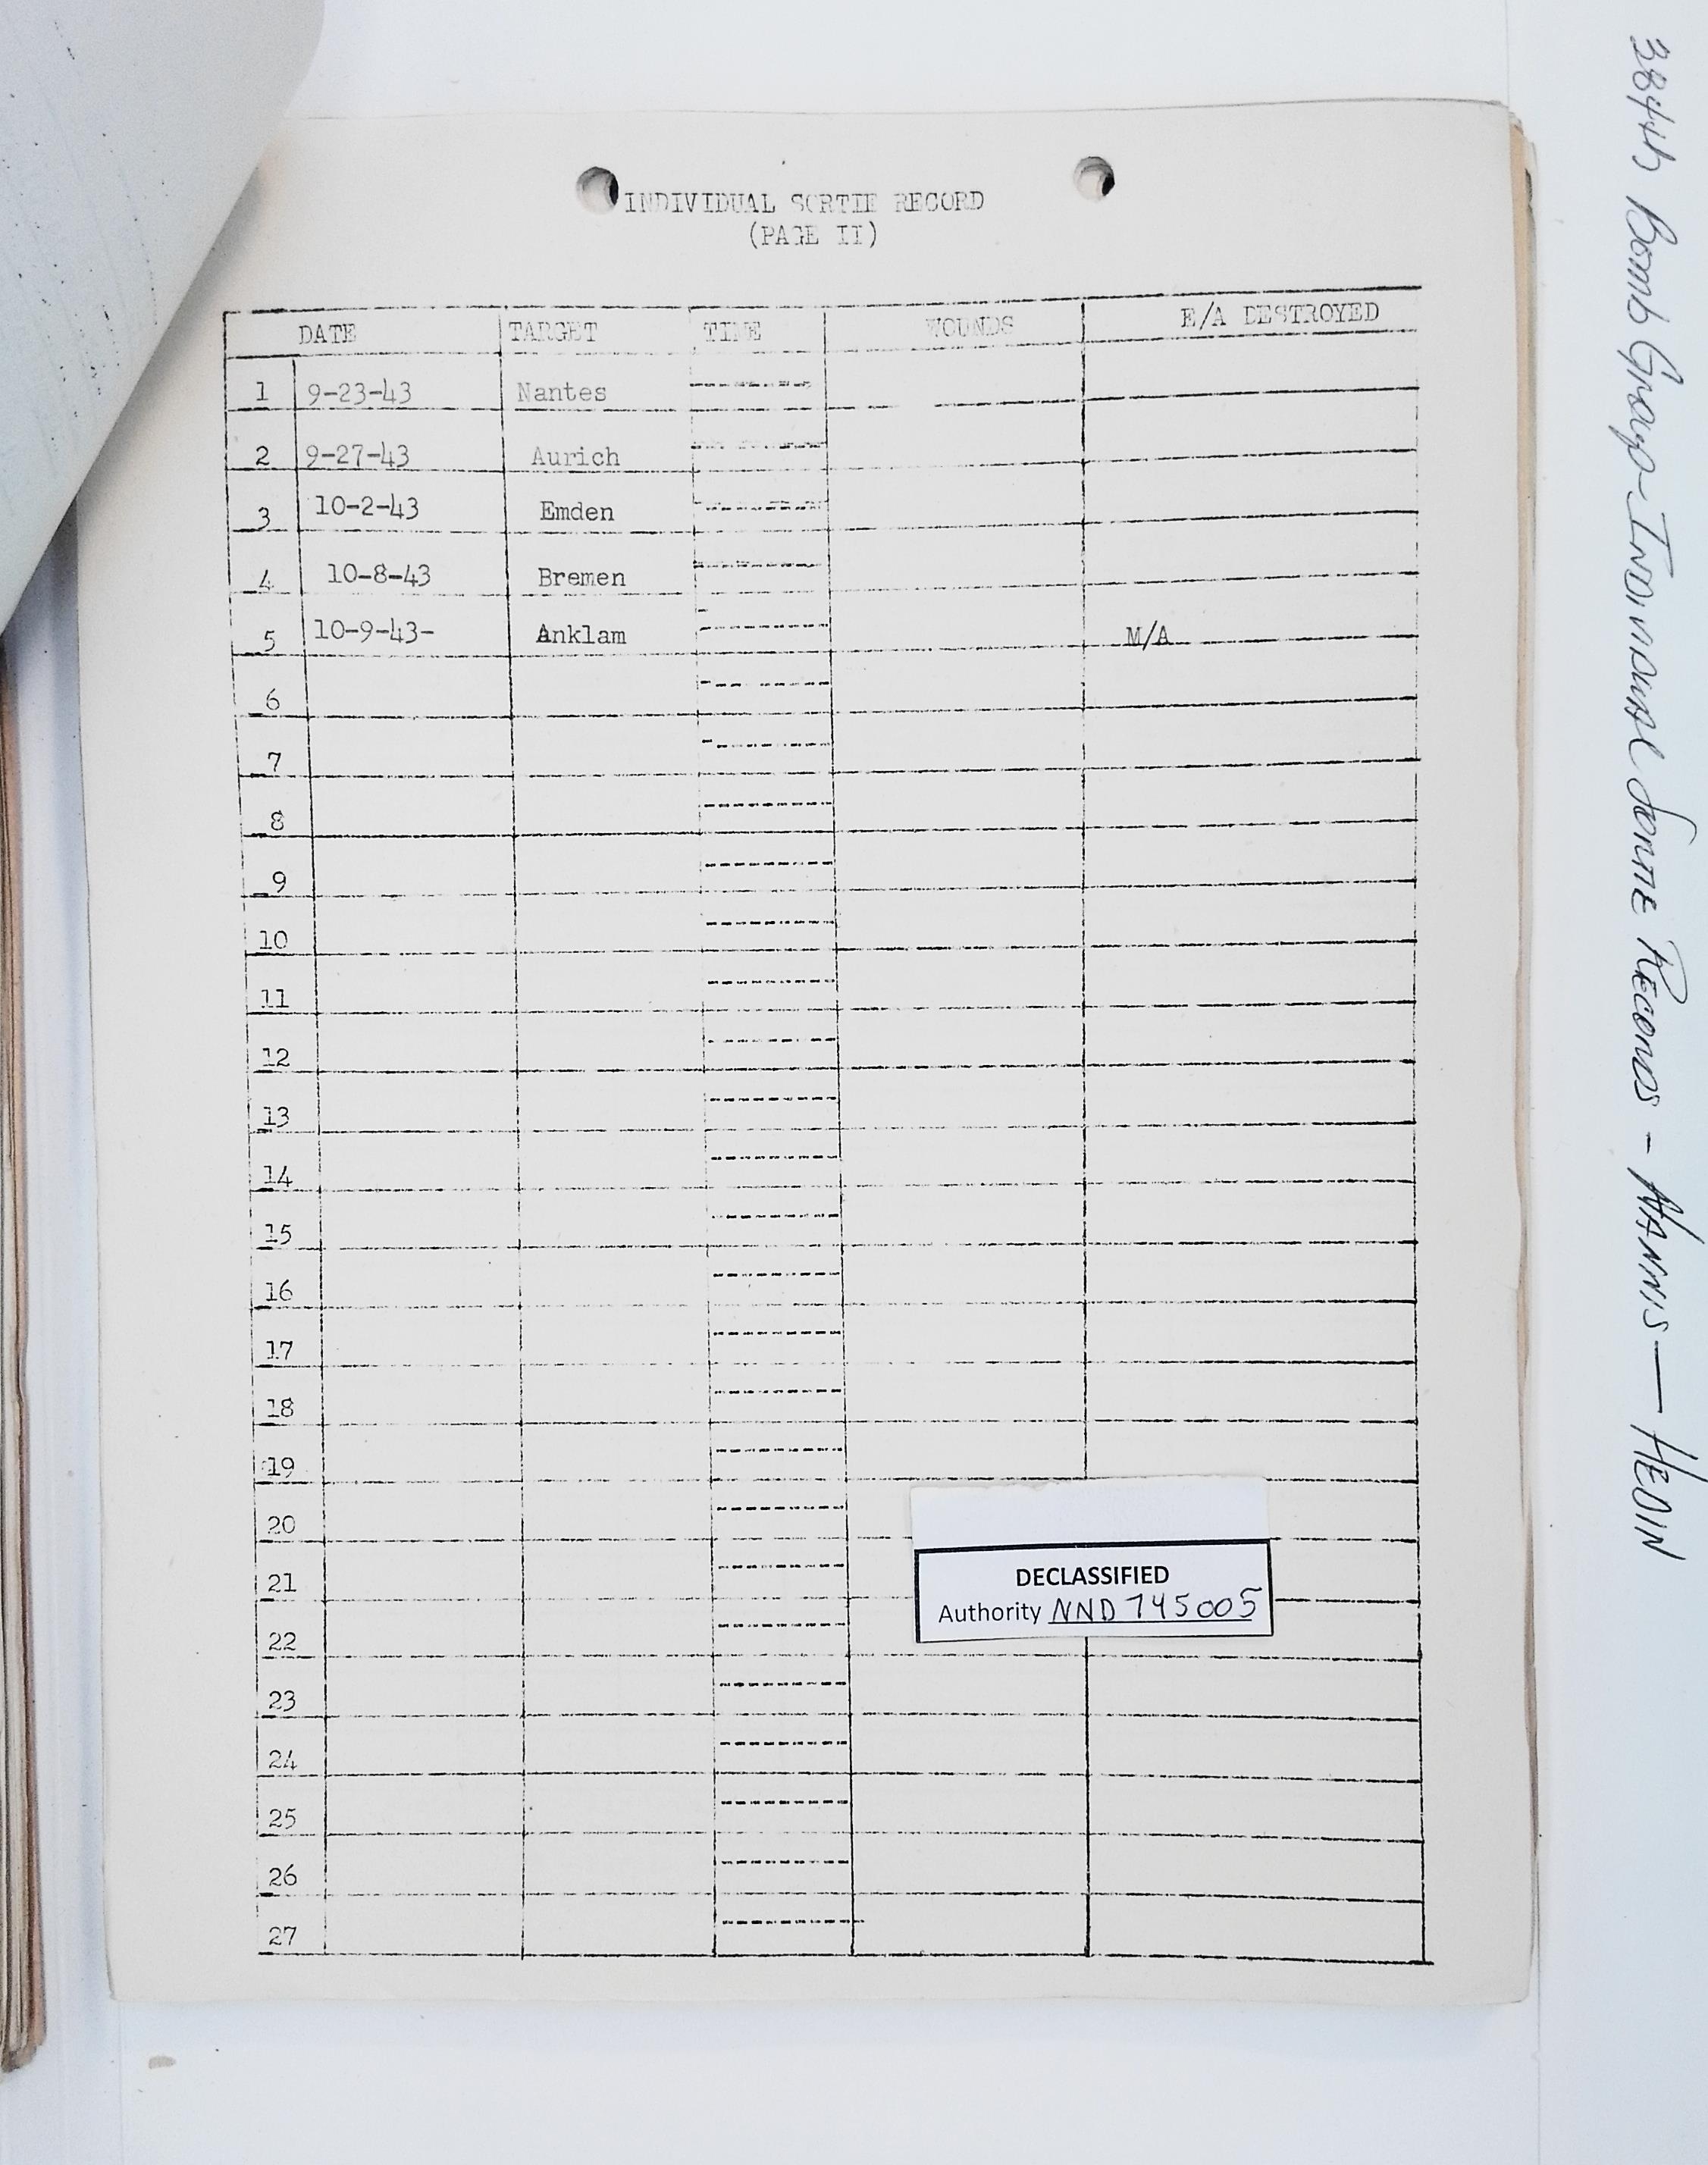 INDIVIDUAL SORTIE RECORD
(PAGE II)
DATE TARGET TIME WOUNDS E/A DESTROYED
1 9-23-43 Nantes
2 9-27-43 Aurich
3 10-2-43 Emden
4 10-8-43 Bremen
5 10-9-43- Anklam M/A
6
7
8
9
10
11
12
13
14
15
16
17
18
19
20
21
22
23
24
25
26
27
DECLASSIFIED
Authority NND 745005
384th Bomb Group - Individual Sortie Records - Hannis — Hedin